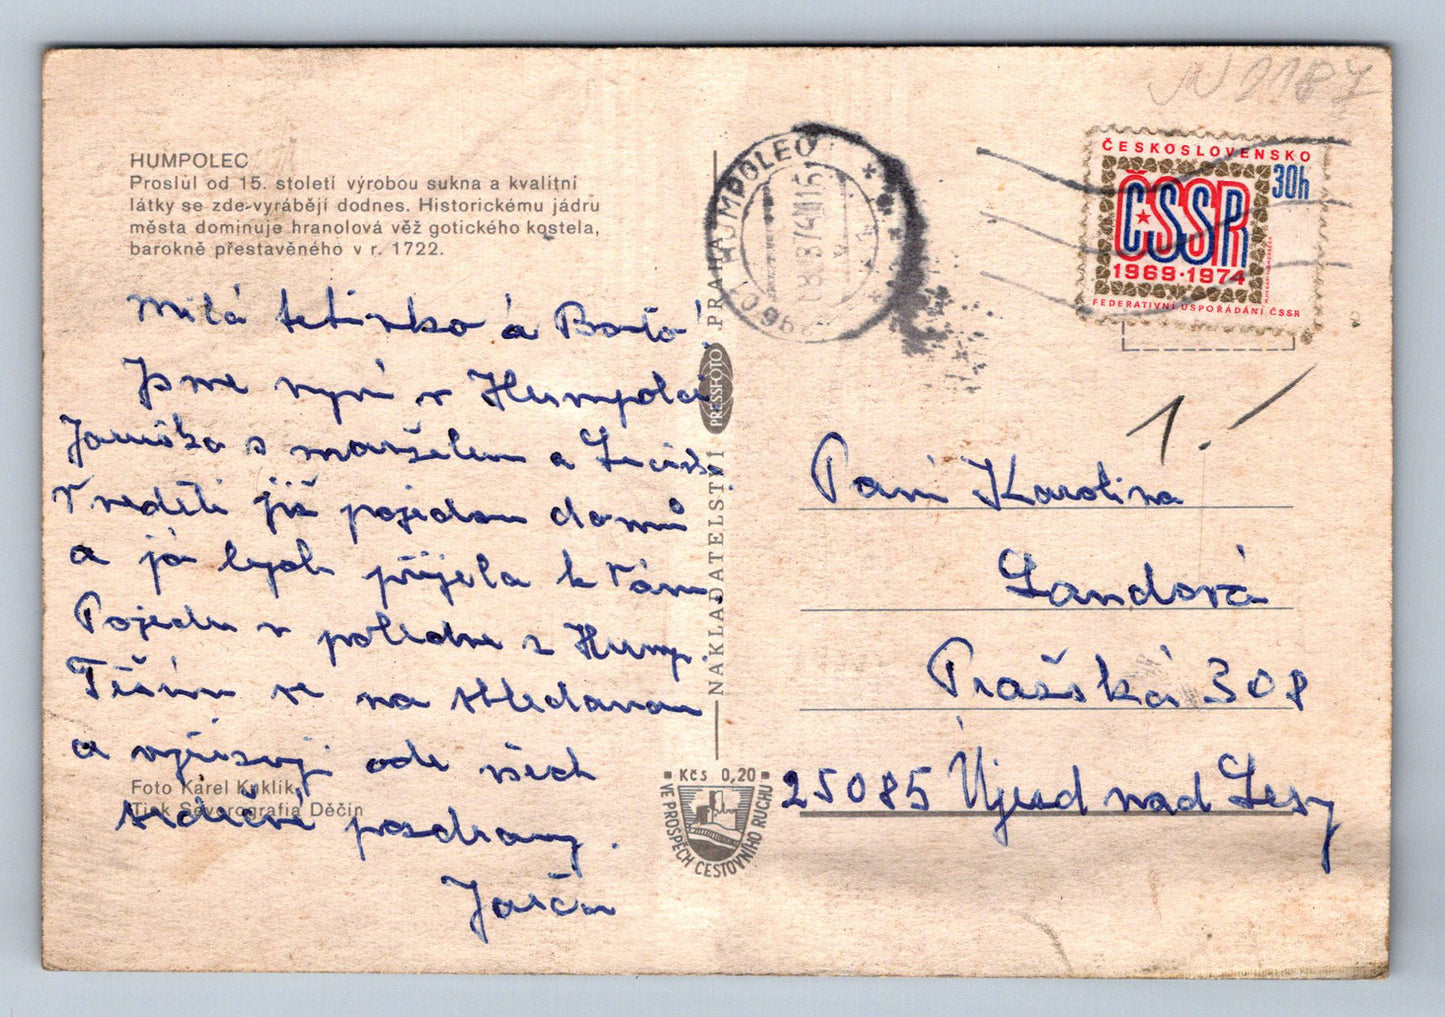 HUMPOLEC
Proslul od 15. století výrobou sukna a kvalitní
látky se zde vyrábějí dodnes. Historickému jádru
města dominuje hranolová věž gotického kostela,
barokně přestavěného v r. 1722.
Milá tetinko a
Jsme nyní v Humpolci
Jaruška s manželem a
V neděli již pojedou domů
a já bych přijela k Vám.
Pojedu v poledne z Hump.
Těším se na shledanou
a vyřizuji ode všech
srdečné pozdravy.
Jarča
Foto Karel Kuklík
Tisk Severografia Děčín
NAKLADATELSTVÍ PRESSFOTO PRAHA
Kčs 0,20
VE PROSPĚCH CESTOVNÍHO RUCHU
HUMPOLEC
ČESKOSLOVENSKO
30h
ČSSR
1969·1974
FEDERATIVNÍ USPOŘÁDÁNÍ ČSSR
1.
Paní Karolina
Landová
Pražská 308
25085 Újezd nad Lesy